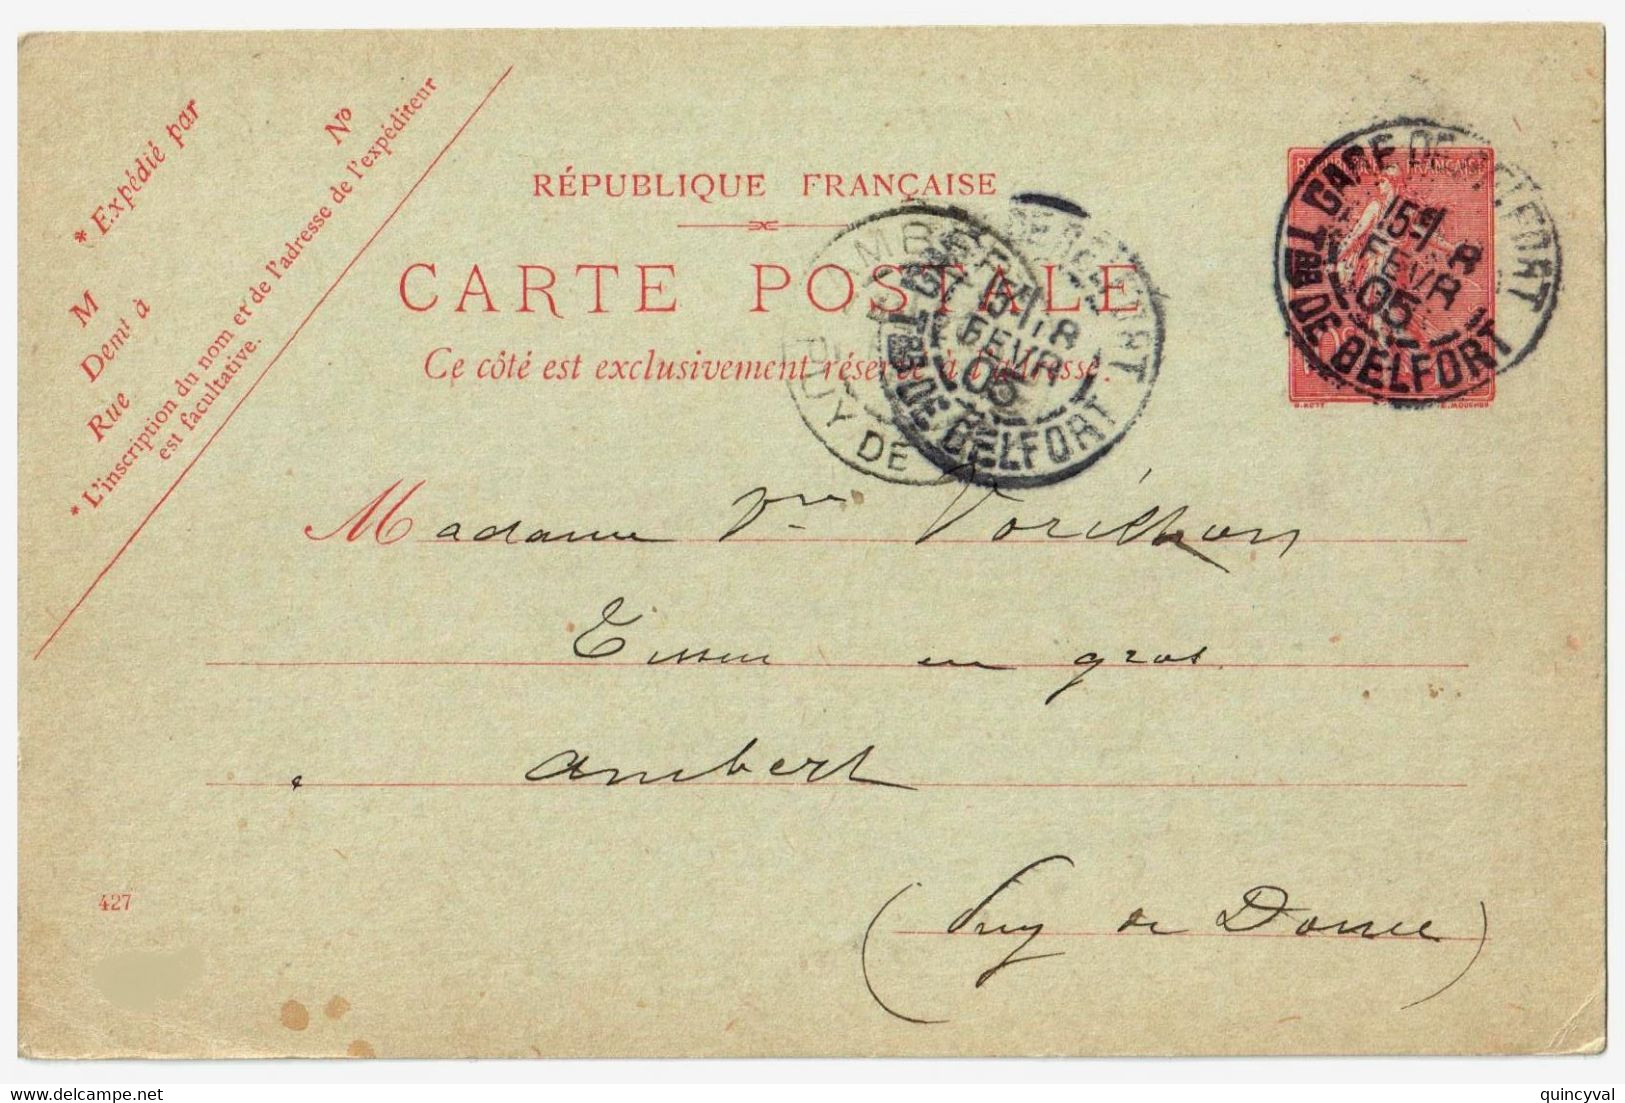 * Expédié par
M
Demt à
Rue Nº
* L'inscription du nom et de l'adresse de l'expéditeur
est facultative.
RÉPUBLIQUE FRANÇAISE
CARTE POSTALE
Ce côté est exclusivement réservé à l'adresse.
GARE DE BELFORT
15
8
FEVR
05
TRE DE BELFORT
AMBERT
PUY DE
GARE DE BELFORT
15
8
FEVR
05
TRE DE BELFORT
Madame Vve Vorilhon
Tissus en gros
Ambert
(Puy de Dome)
427
quincyval